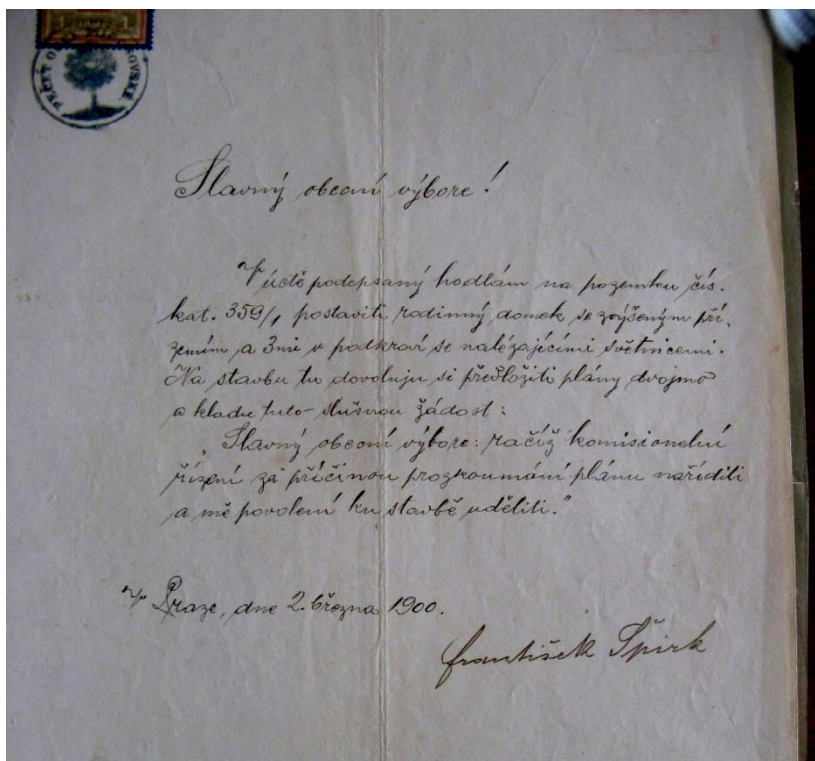 1
PEČEŤ O
OVSKÉ
Slavný obecní výbore!
V úctě podepsaný hodlám na pozemku čís.
kat. 359/1 postaviti rodinný domek se zvýšeným pří-
zemím a 3mi v podkroví se nalézajícími světnicemi.
Na stavbu tu dovoluju si předložiti plány dvojmo
a kladu tuto slušnou žádost:
„Slavný obecní výbore: račiž komisionelní
řízení za příčinou prozkoumání plánu naříditi
a mě povolení ku stavbě uděliti."
V Praze, dne 2. března 1900.
František Špirk